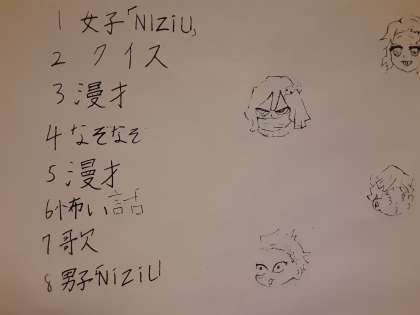 1 女子「NIZIU」
2 クイス
3 漫才
4 なぞなぞ
5 漫才
6 怖い話
7 歌
8 男子「NIZIU」